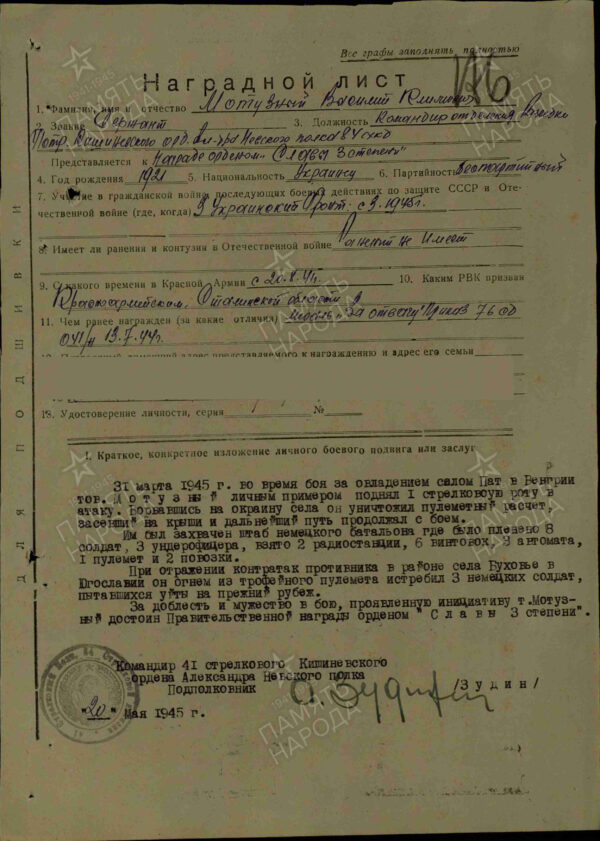 Все графы заполнять полностью
Наградной лист
1. Фамилия, имя и отчество Мотузный Василий
2. Звание Сержант 3. Должность Командир отделения
Кишиневского орд. Невского полка 84
Представляется к награде орденом „Славы 3 степени"
4. Год рождения 1921 5. Национальность Украинец 6. Партийность беспартийный
7. Участие в гражданской войне, последующих боевых действиях по защите СССР и Оте-
чественной войне (где, когда) 3 Украинский фронт с
8. Имеет ли ранения и контузии в Отечественной войне Ранений не имеет
9. С какого времени в Красной Армии с 10. Каким РВК призван
Красноармейским, Сталинской области
11. Чем ранее награжден (за какие отличия) медаль „За отвагу" Приказ 76
041/н 13.7.44г.
12. Постоянный домашний адрес представляемого к награждению и адрес его семьи
13. Удостоверение личности, серия №
I. Краткое, конкретное изложение личного боевого подвига или заслуг
31 марта 1945 г. во время боя за овладением салом Пат в Венгрии
тов. Мотузный личным примером поднял I стрелковую роту в
атаку. Ворвавшись на окраину села он уничтожил пулеметный расчет,
засевший на крыши и дальнейший путь продолжал с боем.
Им был захвачен штаб немецкого батальона где было пленено 8
солдат, 3 ундерофицера, взято 2 радиостанции, 6 винтовок, 9 автомата,
I пулемет и 2 повозки.
При отражении контратак противника в районе села Буховье в
Югославии он огнем из трофейного пулемета истребил 3 немецких солдат,
пытавшихся уйты на прежний рубеж.
За доблесть и мужество в бою, проявленную инициативу т. Мотуз-
ный достоин Правительственной награды орденом " Славы 3 степени".
Командир 41 стрелкового Кишиневского
ордена Александра Невского полка
Подполковник /Зудин/
"20" Мая 1945 г.
ДЛЯ ПОДШИВКИ
ПАМЯТЬ НАРОДА